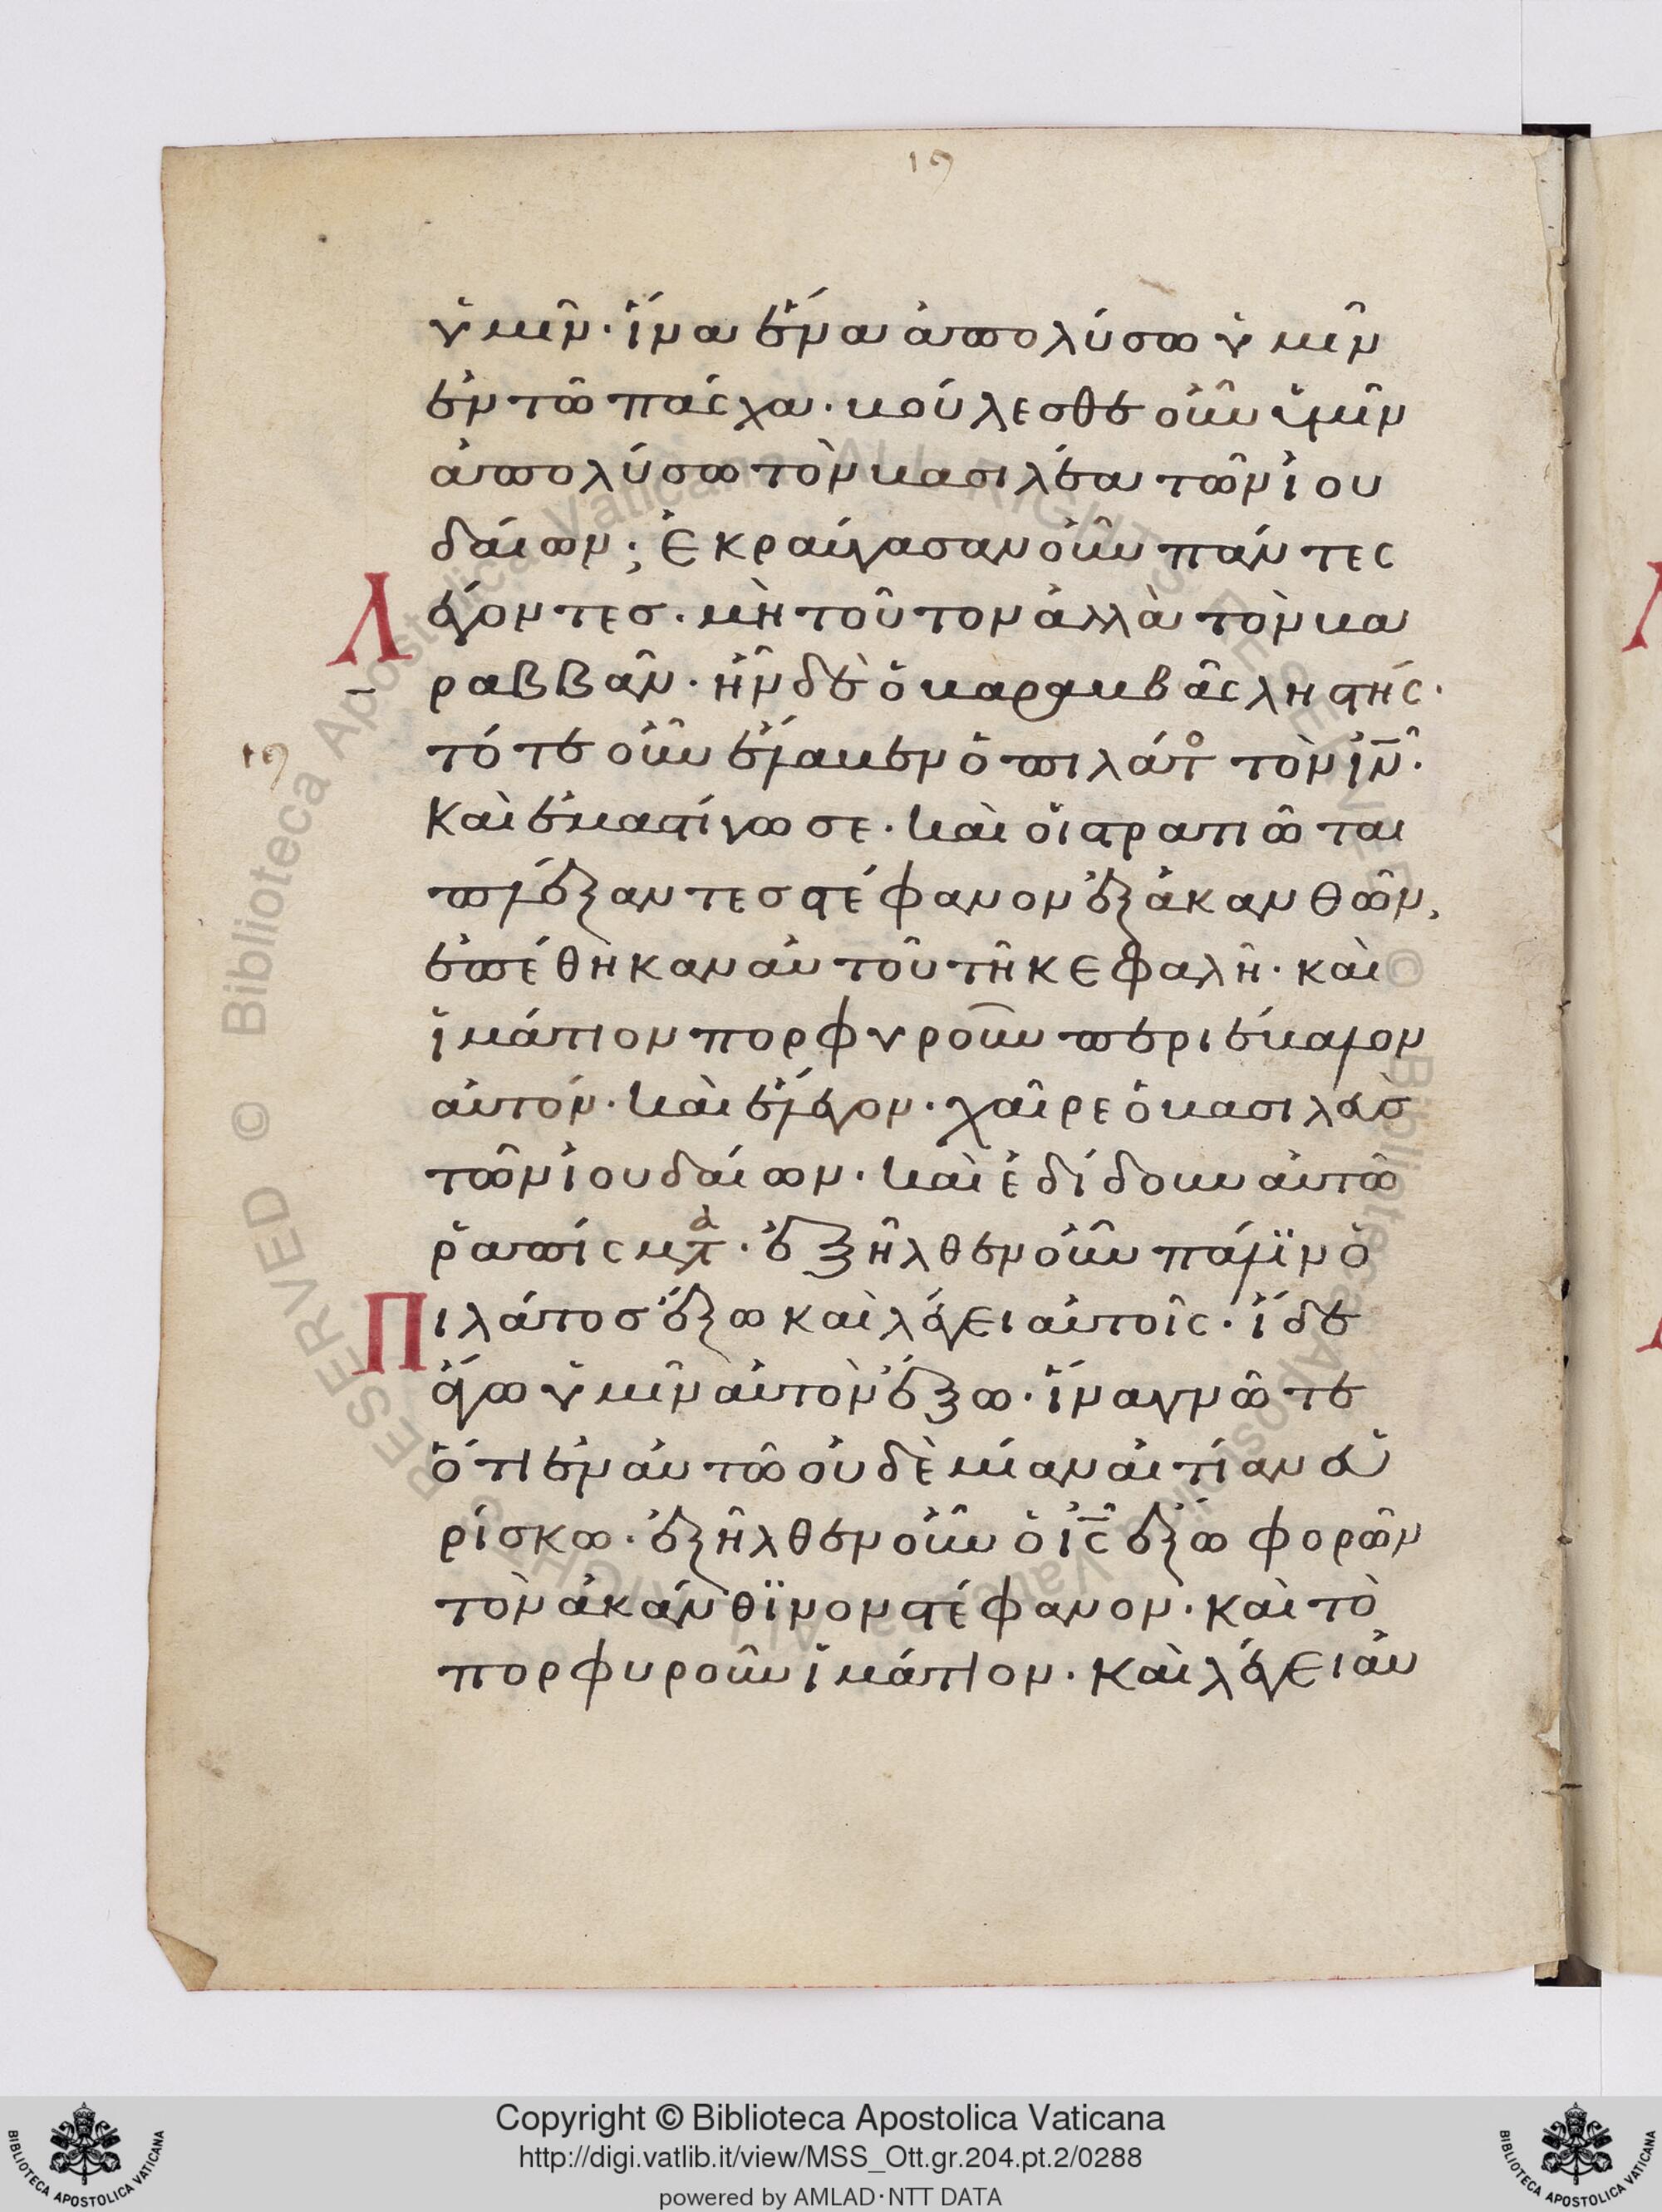 19
ὑμῖν· ἵνα ἕνα ἀπολύσω ὑμῖν
ἐν τῶ πάσχα· βούλεσθε οὖν ὑμῖν
ἀπολύσω τὸν βασιλέα τῶν ἰου
δαίων; Ἐκραύγασαν οὖν πάντες
Λέγοντες· μὴ τοῦτον ἀλλὰ τὸν βα
ραββᾶν· ἦν δὲ ὁ βαραββᾶς ληστής·
19
τότε οὖν ἔλαβεν ὁ πιλάτο τὸν ιν·
Καὶ ἐμαστίγωσε· καὶ οἱ στρατιῶται
πλέξαντες στέφανον ἐξ ἀκανθῶν,
ἐπέθηκαν αὐτοῦ τῆ κεφαλῆ· καὶ
ἱμάτιον πορφυροῦν περιέβαλον
αὐτόν· καὶ ἔλεγον· χαῖρε ὁ βασιλεὺς
τῶν ἰουδαίων· καὶ ἐδίδουν αὐτῶ
ῥαπίσματα· ἐξῆλθεν οὖν πάλϊν ὁ
Πιλάτος ἔξω καὶ λέγει αὐτοῖς· ἴδε
ἄγω ὑμῖν αὐτὸν ἔξω· ἵνα γνῶτε
ὅτι ἐν αὐτῶ οὐδὲ μίαν αἰτίαν εὑ
ρίσκω· ἐξῆλθεν οὖν ὁ ις ἔξω φορῶν
τὸν ἀκάνθϊνον στέφανον· καὶ τὸ
πορφυροῦν ἱμάτιον· καὶ λέγει αὐ
Copyright © Biblioteca Apostolica Vaticana
http://digi.vatlib.it/view/MSS_Ott.gr.204.pt.2/0288
powered by AMLAD·NTT DATA
BIBLIOTECA APOSTOLICA VATICANA
BIBLIOTECA APOSTOLICA VATICANA